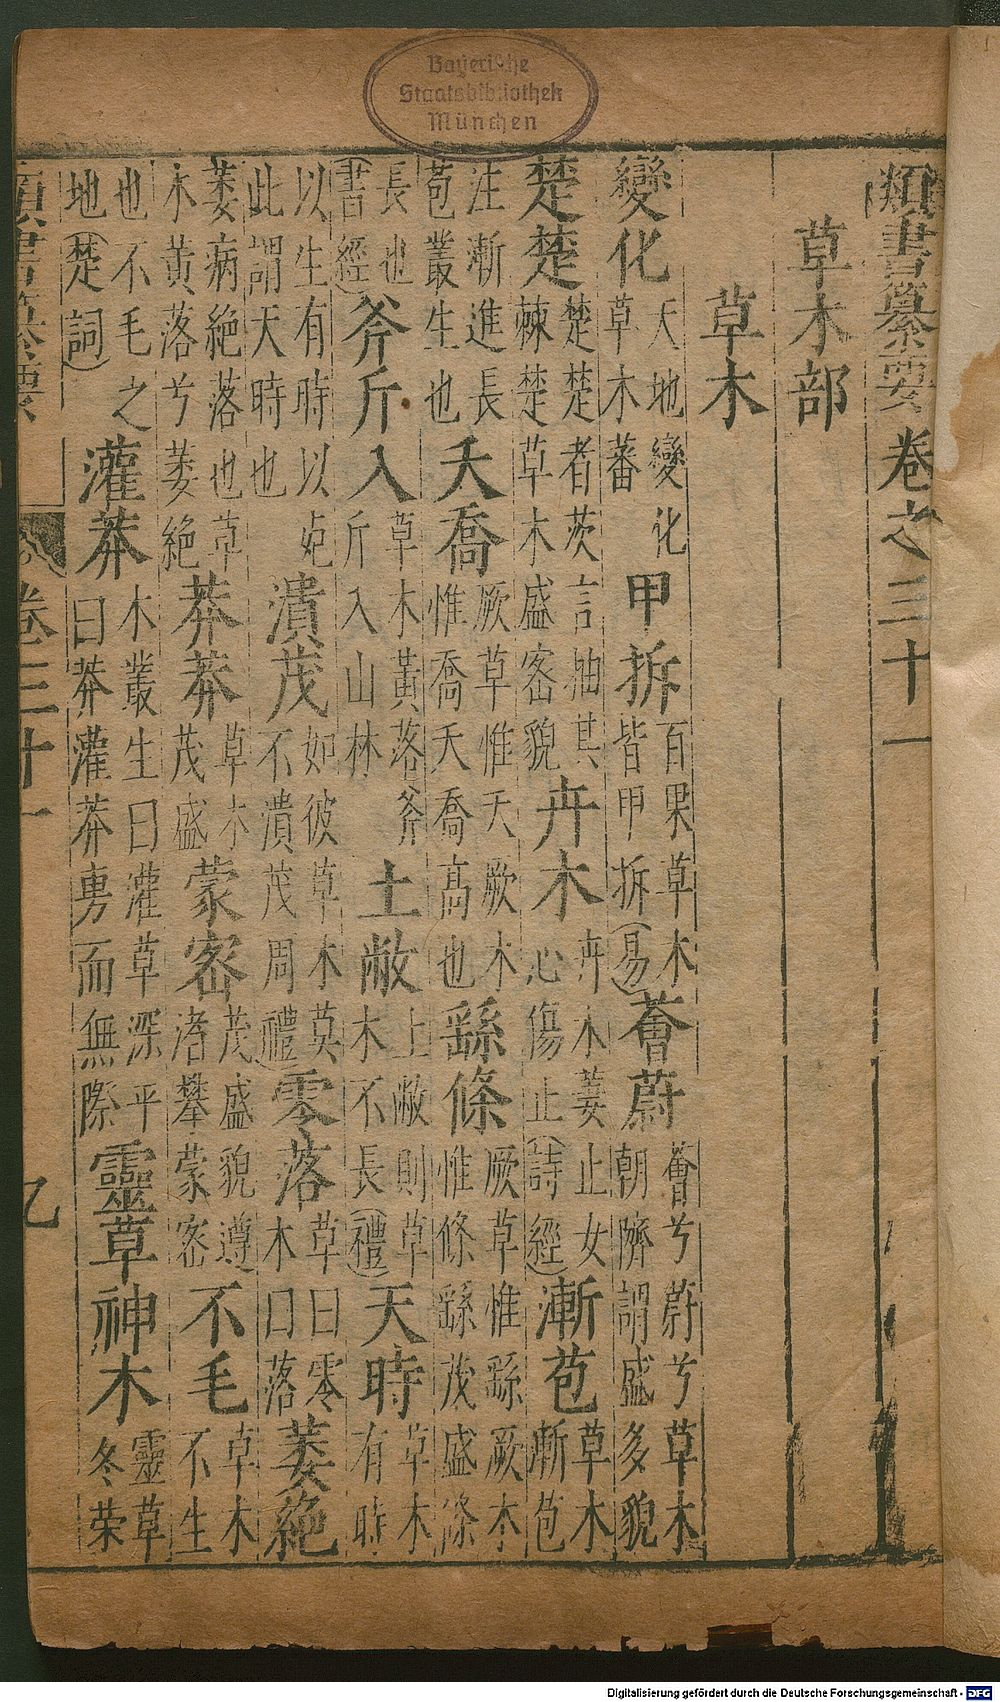 Bayerische
Staatsbibliothek
München
類書纂要卷之三十一
草木部
草木
變化天地變化草木蕃甲拆百果草木皆甲拆(易)薈蔚薈兮蔚兮草木朝隮謂盛多貌
楚楚楚楚者茨言抽其棘楚楚草木盛密貌卉木卉木萋止女心傷止(詩經)漸苞草木漸苞
注漸進長苞叢生也夭喬厥草惟夭厥木惟喬夭喬高也繇條厥草惟繇厥木惟條繇茂盛條
長也(書經)斧斤入草木黃落斧斤入山林土敝土敝則草木不長(禮)天時草木有時
以生有時以死此謂天時也潰茂如彼草木不潰茂周禮零落草曰零木曰落萎絕
萎病絕落也草木黃落兮萎絕莽莽草木茂盛蒙密茂盛貌遵渚攀蒙密不毛草木不生
也不毛之地(楚詞)灌莽木叢生曰灌草深平曰莽灌莽勇而無際靈草神木靈草冬荣
類書纂要
卷三十一
乙
Digitalisierung gefördert durch die Deutsche Forschungsgemeinschaft - DFG